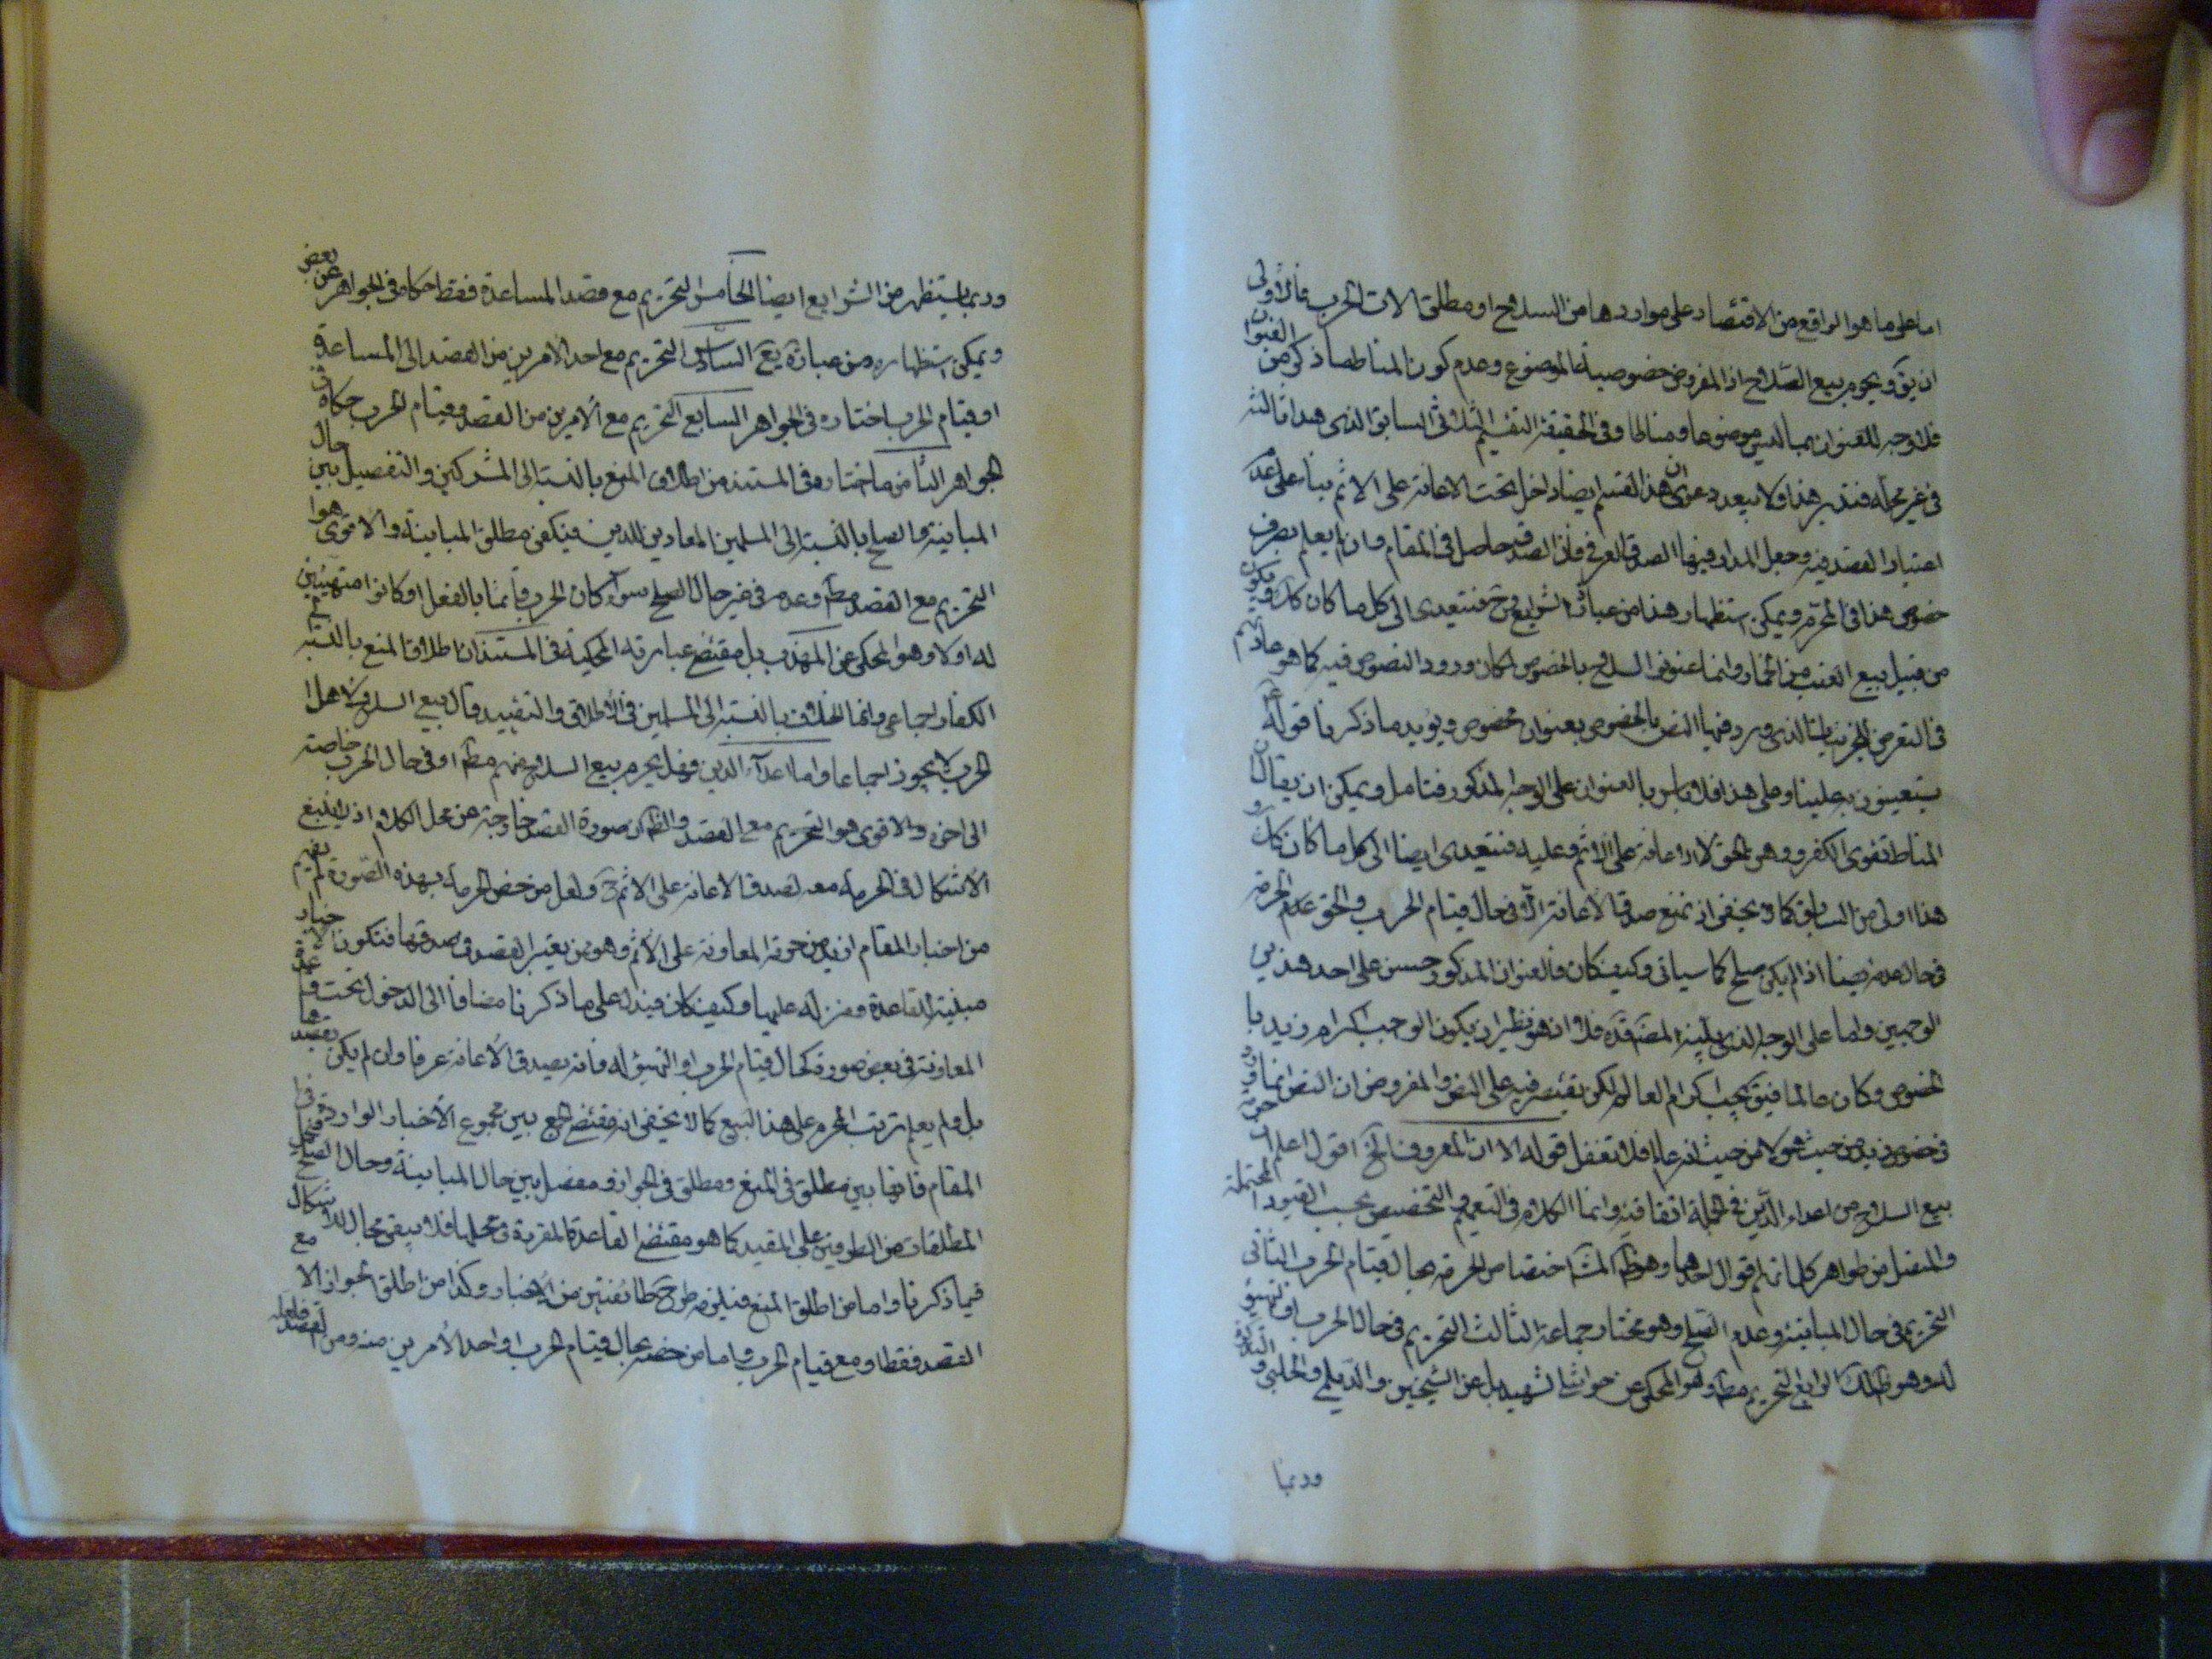 اما على ما هو الواقع من الاقتصار على مواردها من السلاح او مطلق الات الحرب فالاولى
ان يق ويحرم بيع السلاح اذ المفروض خصوصية الموضوع وعدم كون المناط ما ذكر من العنوان
فلا وجه للعنوان بما ليس موضوعا ومناطا وفى الحقيقة التقسيم الثلاثى السابق الذى هذا ثالثه
فى غير محله فتدبر هذا ولا يبعد دعوى ان هذا القسم ايضا داخل تحت الاعانة على الاثم بناء على عدم
اعتبار القصد فيه وجعل المدار فيها الصدق العرفى فان الصدق حاصل فى المقام وان لم يعلم بصرف
خصوص هذا فى المحرم ويمكن استظهار هذا من عبارة الشرايع وح فنتعدى الى كل ما كان كك ويكون
من قبيل بيع العنب من الخمار وانما عنونوا السلاح بالخصوص لمكان ورود النصوص فيه كما هو عادتهم
فى التعرض للجزئيات الذى ورد فيها النص بالخصوص بعنوان مخصوص ويؤيد ما ذكرنا قوله ع
يستعينون به علينا وعلى هذا فلا باس بالعنوان على الوجه المذكور فتامل ويمكن ان يقال ان
المناط تقوى الكفر ووهن الحق لا الاعانة على الاثم وعليه فنتعدى ايضا الى كل ما كان كك و
هذا اولى من السابق كما لا يخفى اذ نمنع صدق الاعانة الا فى حال قيام الحرب والحق عدم الحرمة
فى حال عدمه ايضا اذا لم يكن صلح كما سياتى وكيف كان فالعنوان المذكور حسن على احد هذين
الوجهين واما على الوجه الذى بينه المصنف قده فلا اذ هو نظير ان يكون الواجب اكرام زيد با
لخصوص وكان عالما فيق يجب اكرام العالم لكن يقتصر فيه على النص والمفروض ان النص انما ورد
فى خصوص زيد من حيث هو لا من حيث انه عالم فلا تغفل قوله الا ان المعروف الخ اقول اعلم ان حرمة
بيع السلاح من اعداء الدين فى الجملة اتفاقية وانما الكلام فى التعميم والتخصيص بحسب القيود المحتملة
والمتحصل من ظواهر كلماتهم اقوال احدها وهو ظ المشهور اختصاص الحرمة بحال قيام الحرب الثانى
التحريم فى حال المباينة وعدم الصلح وهو مختار جماعة الثالث التحريم فى حال الحرب او التهيؤ
له وهو ظ لك الرابع التحريم مط وهو المحكى عن حواشى الشهيد بل عن الشيخين والديلمى والحلبى والتذكرة
وربما
وربما يستظهر من الشرايع ايضا الخامس التحريم مع قصد المساعدة فقط حكاه فى الجواهر عن بعض
ويمكن استظهاره من عبارة يع السادس التحريم مع احد الامرين من القصد الى المساعدة
او قيام الحرب اختاره فى الجواهر السابع التحريم مع الامرين من القصد وقيام الحرب حكاه فى
الجواهر الثامن ما اختاره فى المستند من اطلاق المنع بالنسبة الى المشركين والتفصيل بين حال
المباينة والصلح بالنسبة الى المسلمين المعادين للدين فيكفى مطلق المباينة والاقوى هو
التحريم مع القصد مط وعدمه فى غير حال الصلح سواء كان الحرب قائما بالفعل او كانوا متهيئين
له اولا وهو المحكى عن المهذب بل مقتضى عبارته المحكية فى المستند ان اطلاق المنع بالنسبة الى
الكفار اجماعى وانما الخلاف بالنسبة الى المسلمين فى الاطلاق والتقييد قال بيع السلاح لاهل ا
لحرب لا يجوز اجماعا واما اعداء الدين فهل يحرم بيع السلاح منهم مط او فى حال الحرب خاصة
الى اخره والاقوى هو التحريم مع القصد والظ ان صورة القصد خارجة عن محل الكلام اذ لا ينبغى
الاشكال فى الحرمة معه لصدق الاعانة على الاثم ح ولعل من خص الحرمة بهذه الصورة لم يفهم
من اخبار المقام ازيد من حرمة المعاونة على الاثم وهو من يعتبر القصد فى صدقها فتكون الاخبار
مبنية للقاعدة ومنزلة عليها وكيف كان فيدل على ما ذكرنا مضافا الى الدخول تحت قاعدة
المعاونة فى بعض صوره كحال قيام الحرب او التهيؤ له فانه يصدق الاعانة عرفا وان لم يكن يقصدها
بل ولم يعلم ترتب المحرم على هذا البيع كما لا يخفى انه مقتضى الجمع بين مجموع الاخبار الواردة فى
المقام فانها بين مطلق فى المنع ومطلق فى الجواز ومفصل بين حال المباينة وحال الصلح فيحمل
المطلقات من الطرفين على المقيد كما هو مقتضى القاعدة المقررة فى محلها فلا يبقى مجال للاشكال
فيما ذكرنا واما من اطلق المنع فيلزمه طرح طائفتين من الاخبار وكذا من اطلق الجواز الا مع
القصد فقط او مع قيام الحرب واما من خصه بحال قيام الحرب او احد الامرين منه ومن القصد فلعله